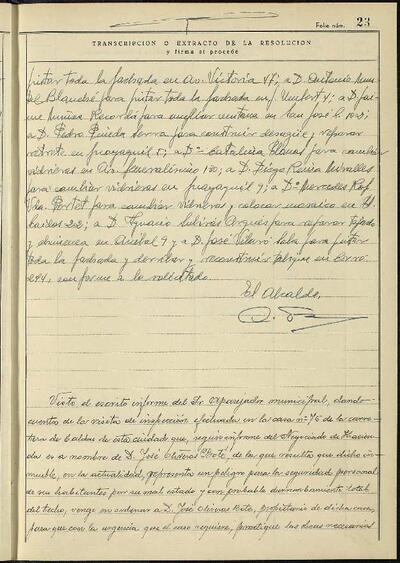 Folio núm. 23
TRANSCRIPCION O EXTRACTO DE LA RESOLUCION
y firma si procede
pintar toda la fachada en Av. Victoria 47; a D. Antonio
Blanche para pintar toda la fachada en J. Umbert 4; a D. Jai-
me Recordá para ampliar ventana en San José
a D. Pedro Pineda Serra para construir desagüe y reparar
retrete en Guayaquil 5; a Dª Catalina para cambiar
vidrieras en Av. Generalísimo 130; a D. Diego Miralles
para cambiar vidrieras en Guayaquil 9; a Dª Mercedes
Vda. Portet para cambiar vidrieras y colocar mosaico en
222; a D. Ignacio Arqués para reparar tejado
y chimenea en Anibal 9 y a D. José Sala para pintar
toda la fachada y derribar y reconstruir tabique en
244, conforme a lo solicitado.
El Alcalde,
Visto el escrito informe del Sr. Aparejador municipal, dando
cuenta de la visita de inspección efectuada en la casa nº 76 de la carre-
tera de Caldas de ésta ciudad que, según informe del Negociado de Hacien-
da es a nombre de D. José Oliveras, de la que resulta que dicho in-
mueble, en la actualidad, representa un peligro para la seguridad personal
de sus habitantes por su mal estado y con probable derrumbamiento total
del techo, vengo en ordenar a D. José Oliveras, propietario de dicha casa,
para que con la urgencia que el caso requiere, practique las obras necesarias